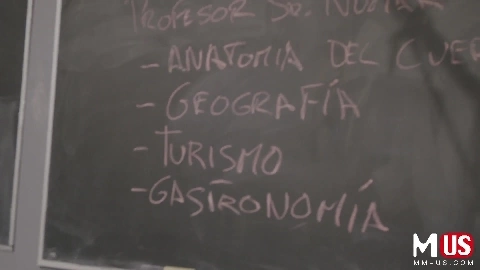 PROFESOR SR.
- ANATOMIA DEL
- GEOGRAFÍA
- TURISMO
- GASTRONOMÍA
M US
MM-US.COM